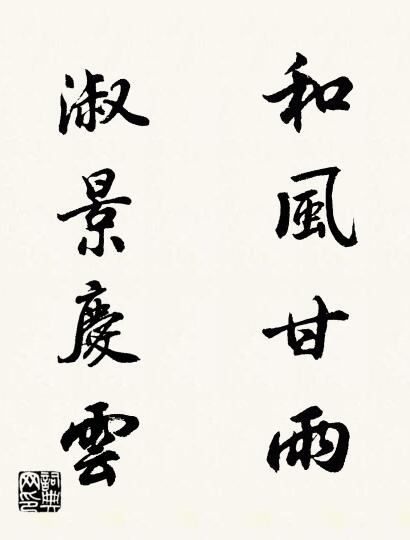 和風甘雨
淑景慶雲
詞典网印